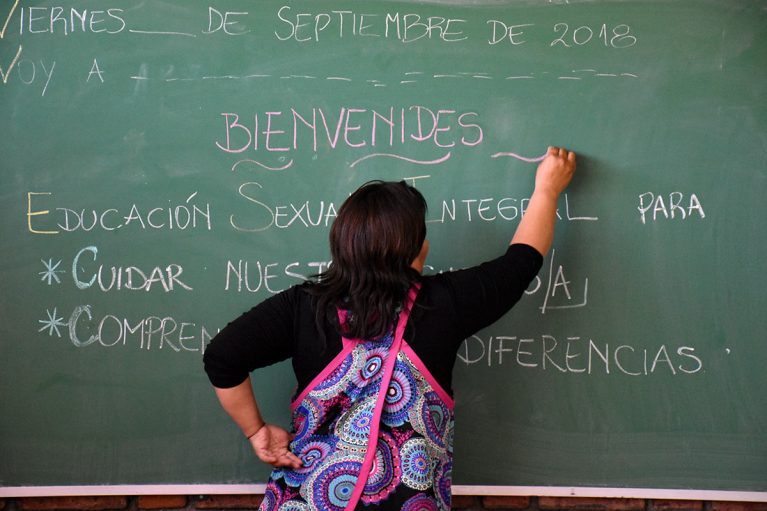 VIERNES DE SEPTIEMBRE DE 2018
VOY A
BIENVENIDES
EDUCACIÓN SEXUAL INTEGRAL PARA
* CUIDAR
* DIFERENCIAS.